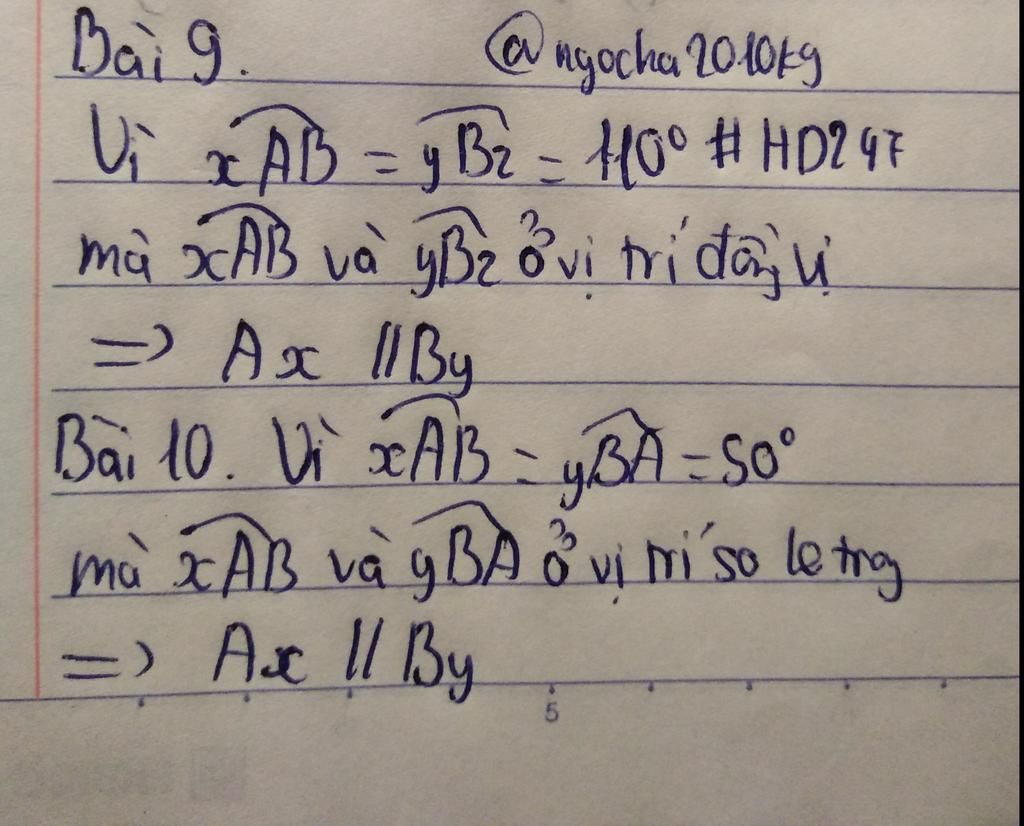 Bài 9. @ngocha2010kg
Vì xAB = yBz = 110° # HD247
mà xAB và yBz ở vị trí đồng vị
=> Ax // By
Bài 10. Vì xAB = yBA = 50°
mà xAB và yBA ở vị trí so le trong
=> Ax // By
5